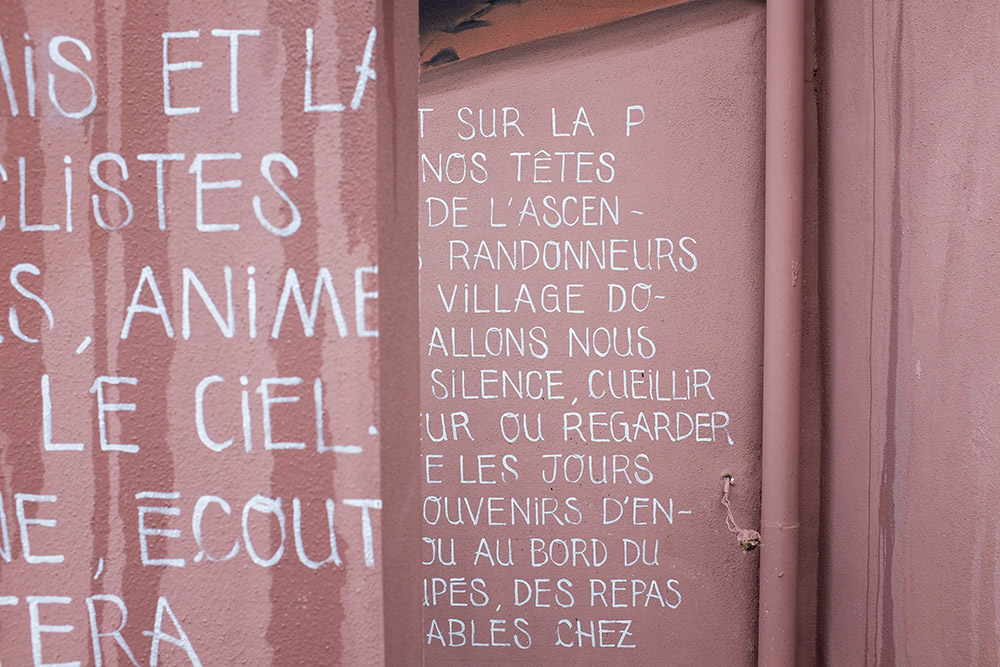 IS ET LA
CLISTES
S, ANIME
LE CIEL.
NE, ÉCOUT
TERA
T SUR LA P
NOS TÊTES
DE L'ASCEN-
S RANDONNEURS
VILLAGE DO-
ALLONS NOUS
SILENCE, CUEILLIR
EUR OU REGARDER
E LES JOURS
OUVENIRS D'EN-
OU AU BORD DU
IPÉS, DES REPAS
ABLES CHEZ